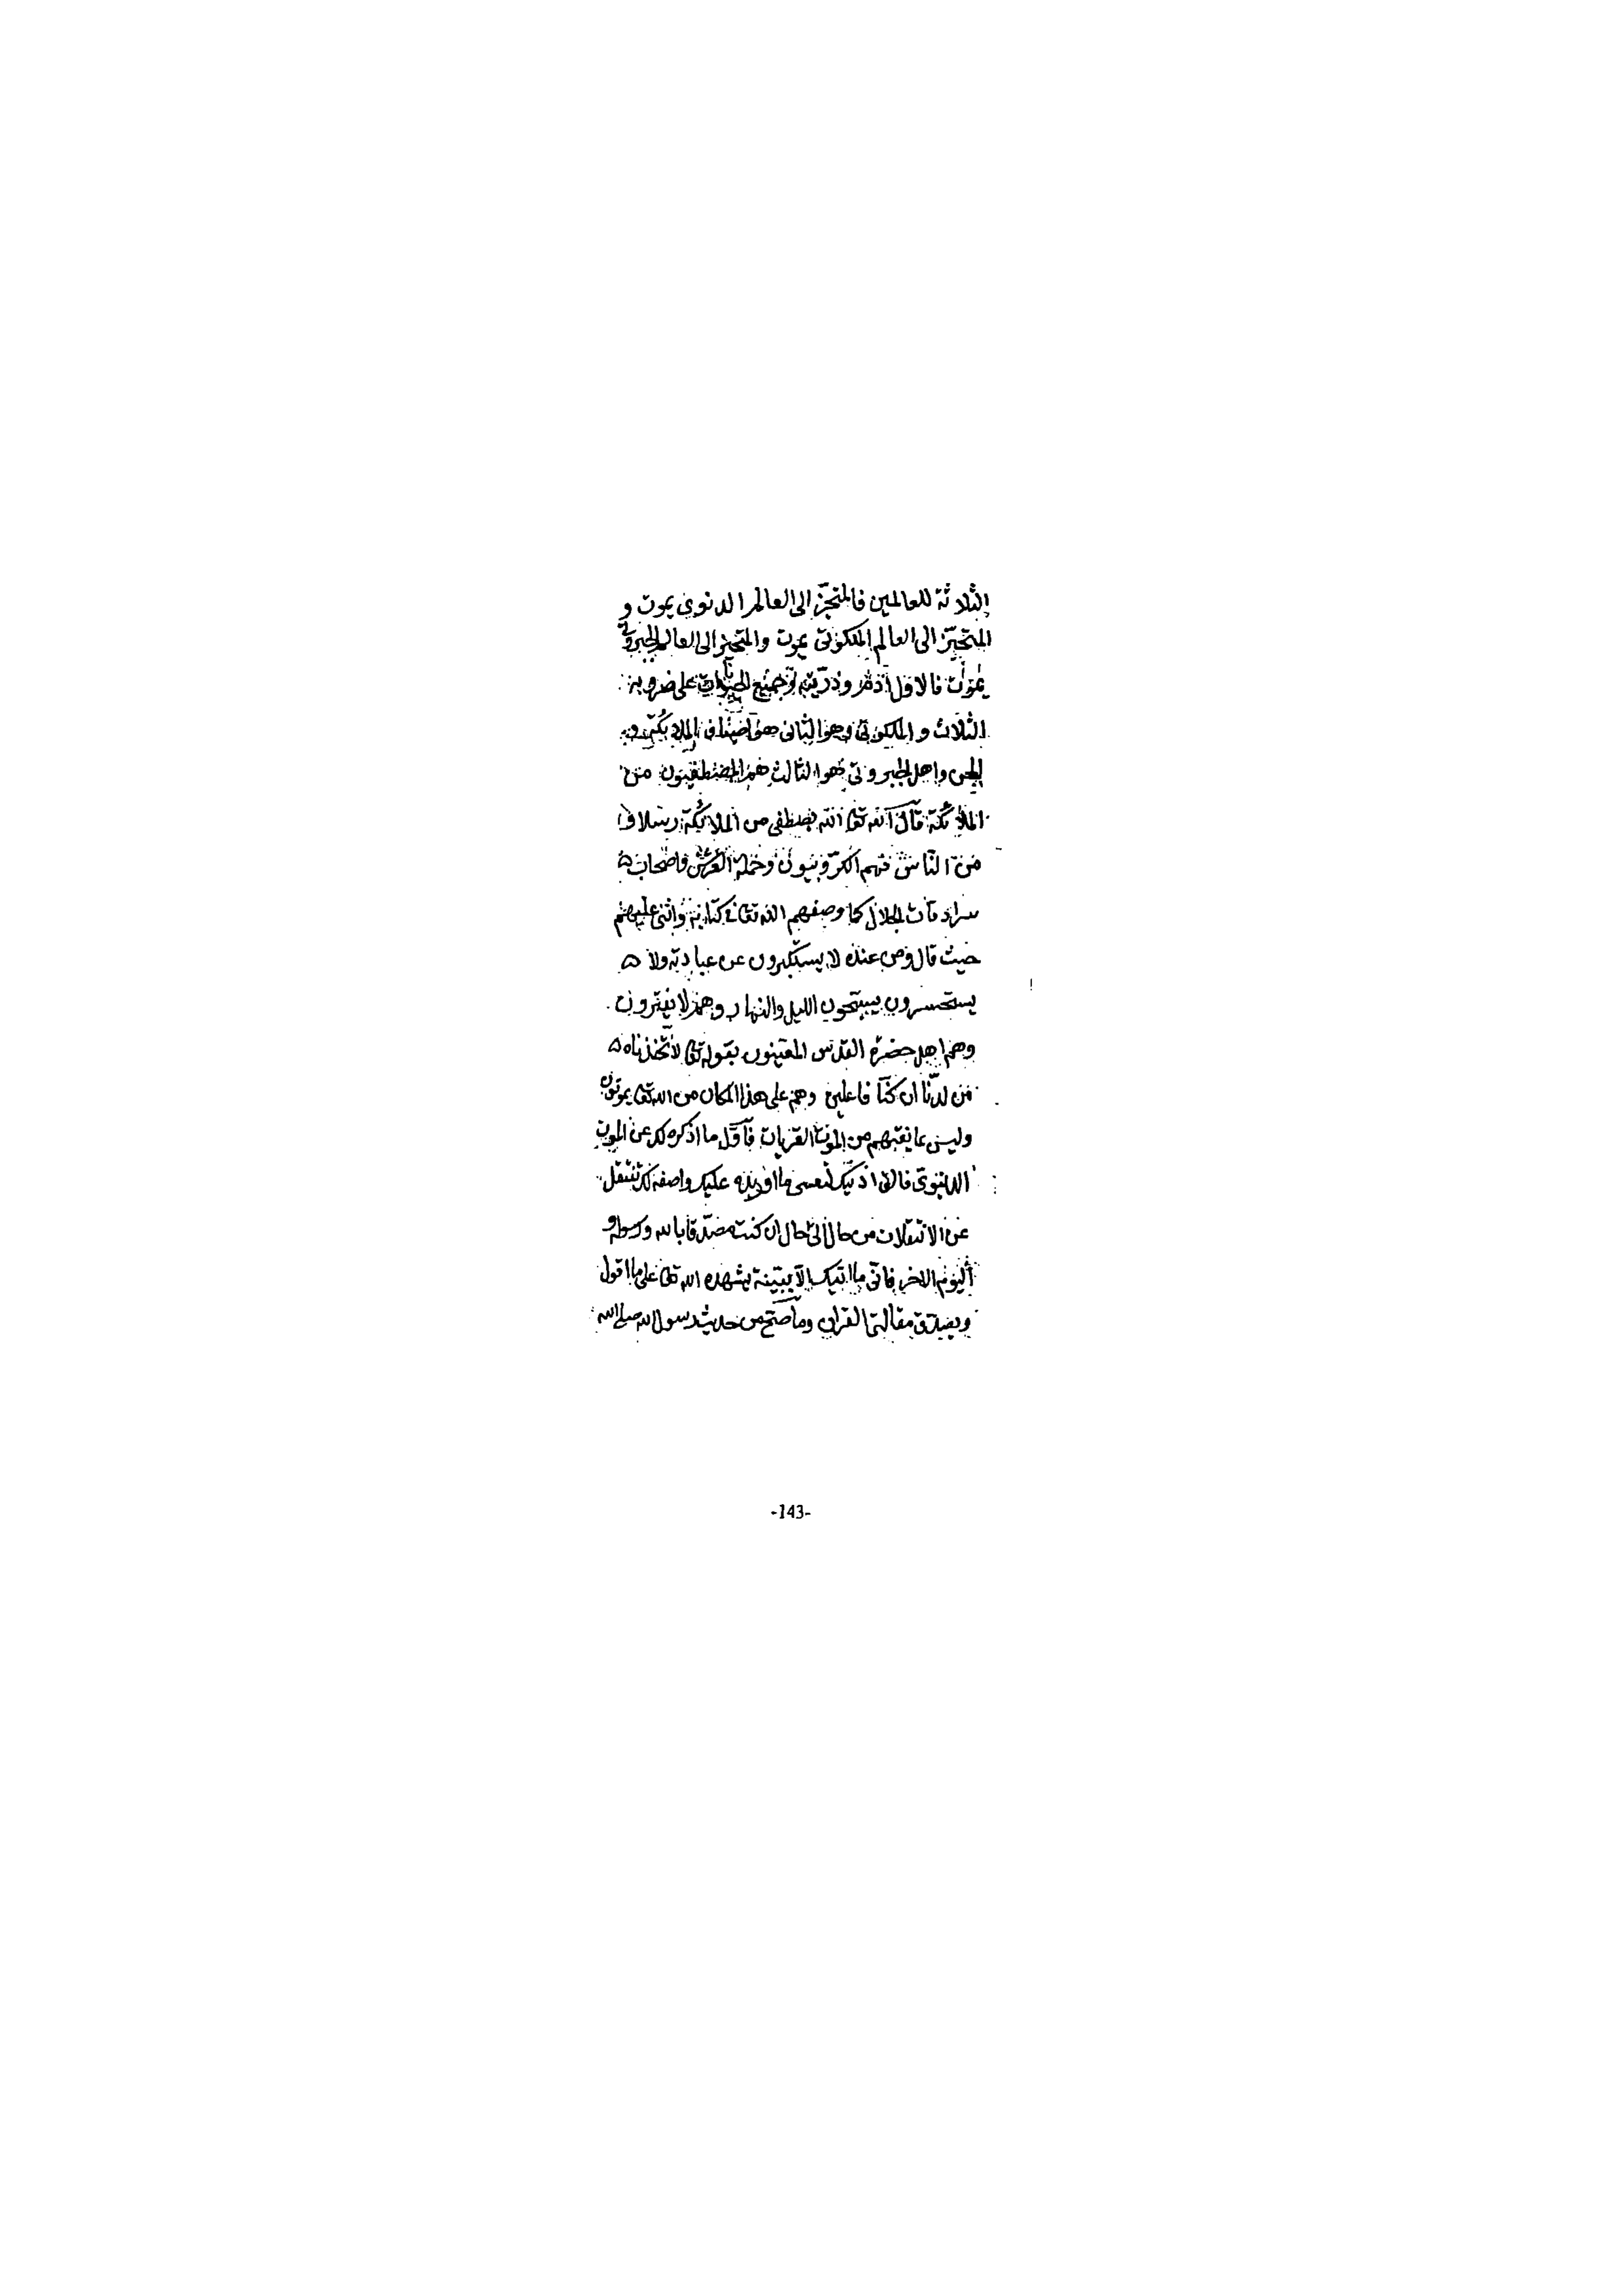 الثلاثة للعالمين فالمتحيّز الى العالم الدنوى يموت و
المتحيّز الى العالم الملكوتىّ يموت والمتحيز الى العالم الجبروتى
يموت فالاول آدم وذريّته وجميع الحيوانات على ضروبه
الثلاث والملكوتىّ وهو الثانى هو اصناف الملائكة و
الجن واهل الجبروتى فهو الثالث هم المصطفون من
الملائكة قال الله تعالى الله يصطفى من الملائكة رسلا و
من الناس فهم الكرّوبيون وحملة العرش واصحاب ه
سرادقات الجلال كما وصفهم الله تعالى فى كتابه واثنى عليهم
حيث قال ومن عنده لا يستكبرون عن عبادته ولا ه
يستحسرون يسبّحون الليل والنهار وهم لا يفترون
وهم اهل حضرة القدس المعنيّون بقوله تعالى لاتّخذناه ه
من لدنّا ان كنّا فاعلين وهم على هذا المكان من الله تعالى يموتون
وليس مانعهم من الموت القربات فاوّل ما اذكره لك عن الموت
الدنيوىّ فالق اذنيك لتعى ما اورده عليك واصفه لك بنقل
عن الانتقالات من حال الى حال ان كنت مصدّقا بالله ورسوله و
اليوم الاخر فانّى ما اتيك الّا ببيّنة يشهد الله تعالى على ما اقول
ويصدّق مقالتى القران وما صحّ من حديث رسول الله صلى الله
-143-